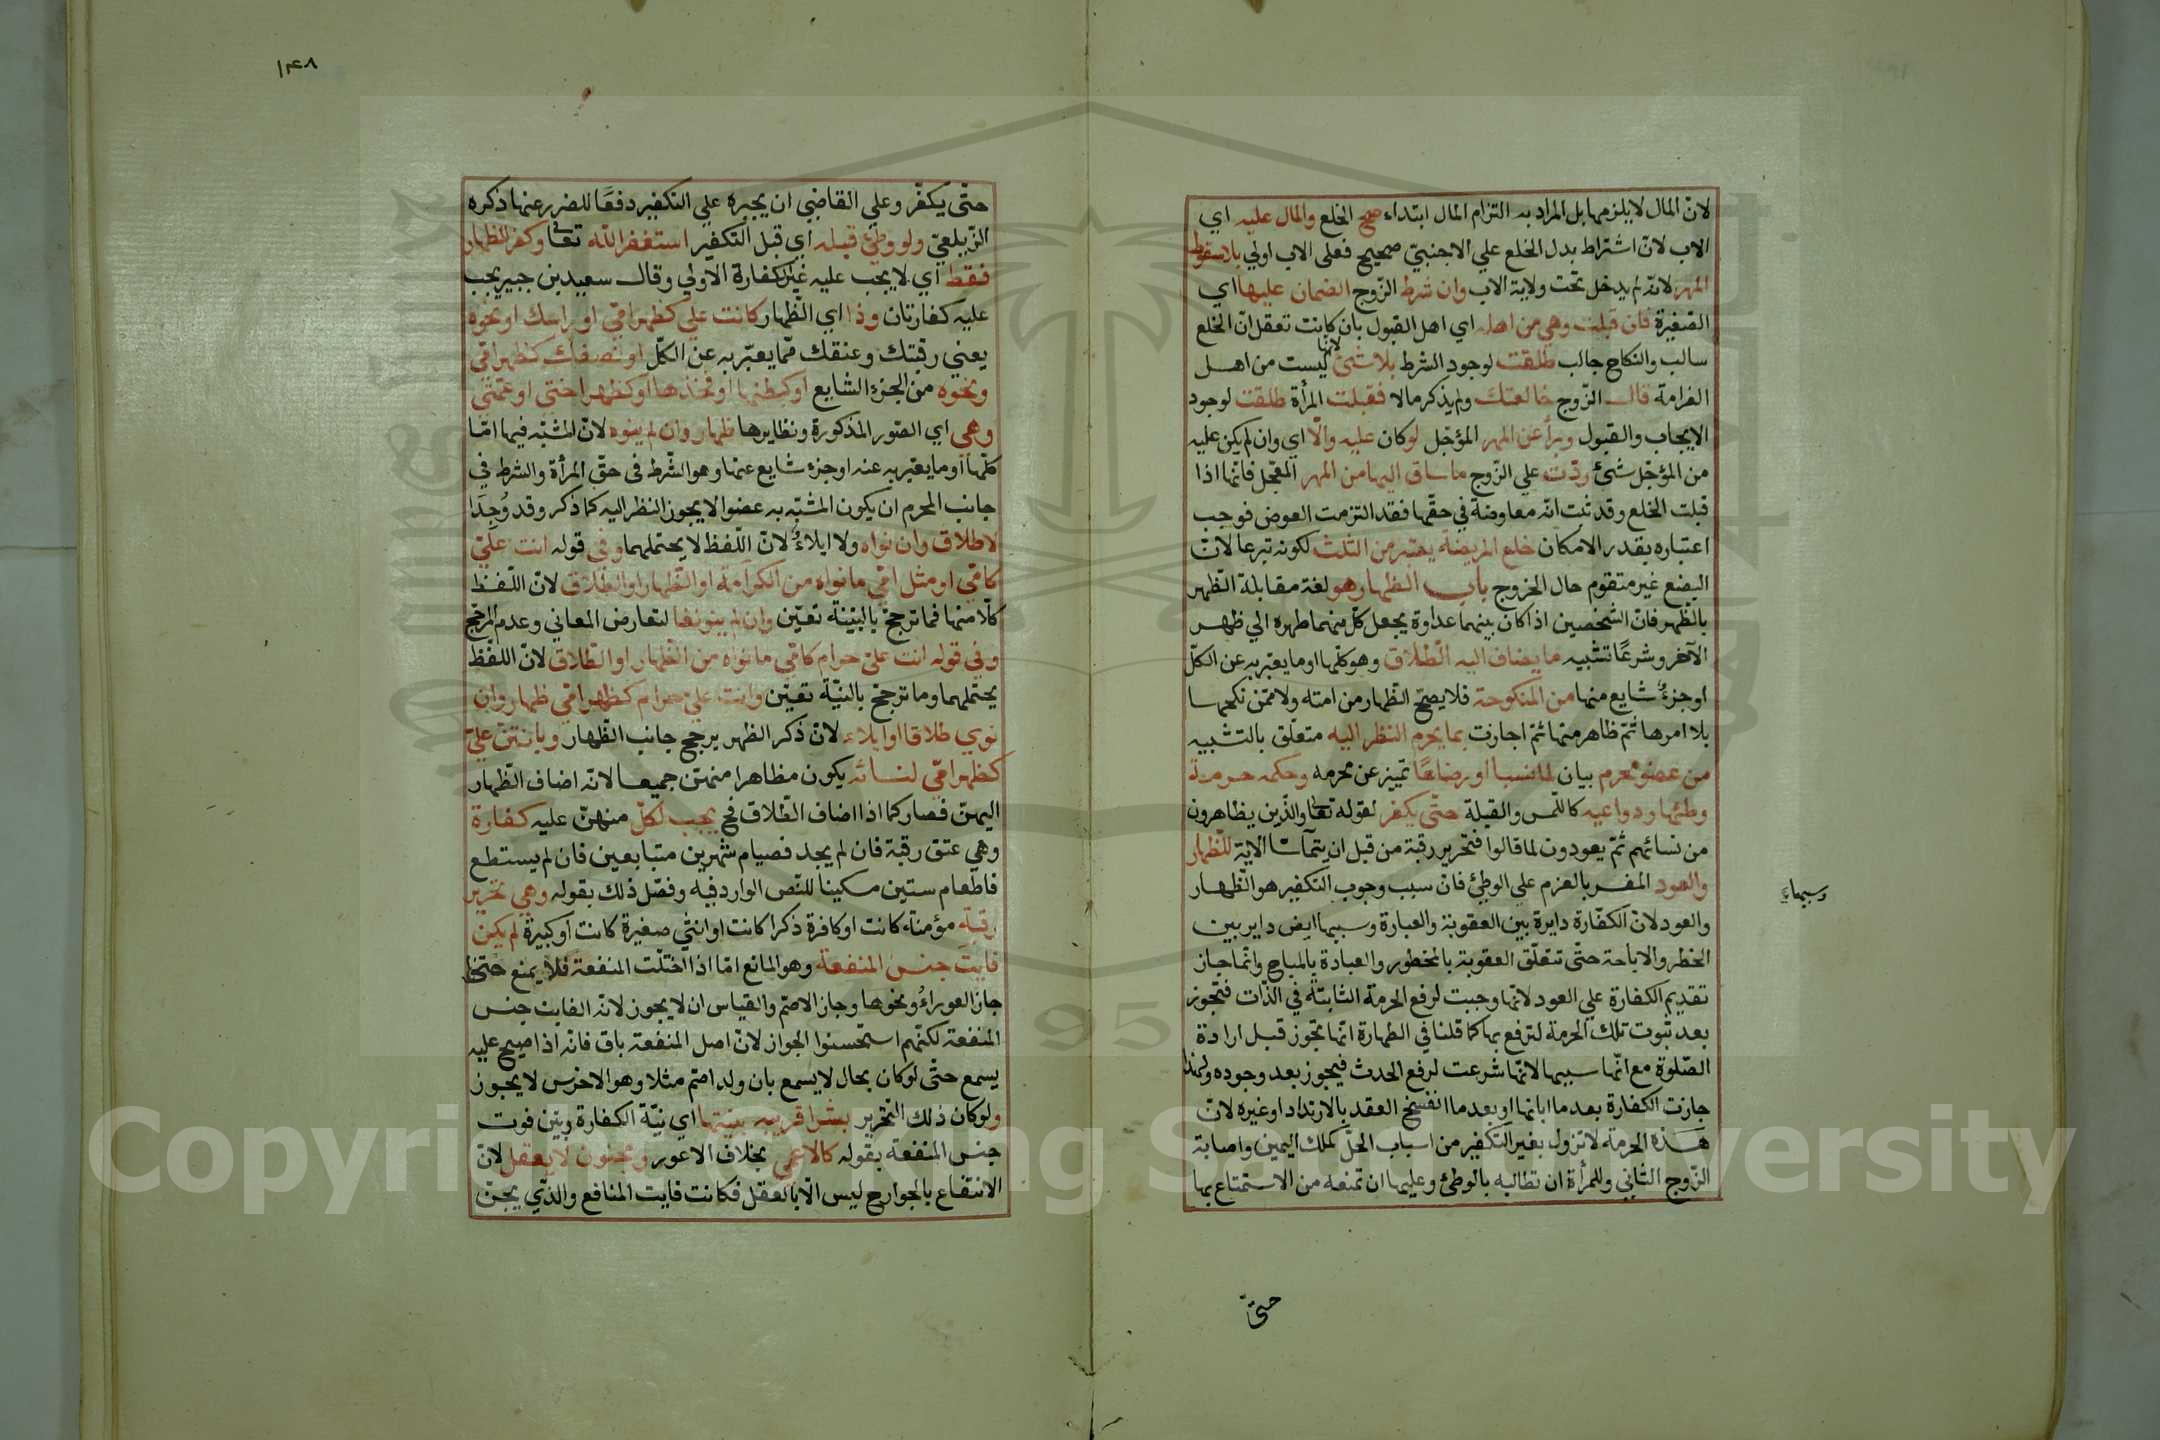 لانّ المال لا يلزمها بل المراد به التزام المال ابتداء صح الخلع والمال عليه اي
الاب لانّ اشتراط بدل الخلع علي الاجنبيّ صحيح فعلى الاب اولي بلا سقوط
المهر لانّه لم يدخل تحت ولاية الاب وان شرط الزّوج الضمان عليها اي
الصّغيرة فان قبلت وهي من اهله اي اهل القبول بان كانت تعقل انّ الخلع
سالب والنكاح جالب طلقت لوجود الشرط بلا شئ لانّها ليست من اهل
الغرامة قال الزّوج خالعتك ولم يذكر مالا فقبلت المرأة طلقت لوجود
الايجاب والقبول وبرأ عن المهر المؤجّل لو كان عليه والّا اي وان لم يكن عليه
من المؤجّل شئ ردّت علي الزّوج ما ساق اليها من المهر المعجّل فانّها اذا
قبلت الخلع وقد ثبت انّه معاوضة في حقّها فقد التزمت العوض فوجب
اعتباره بقدر الامكان خلع المريضة يعتبر من الثلث لكونه تبرعا لانّ
البضع غير متقوم حال الخروج باب الظهار وهو لغة مقابلة الظّهر
بالظّهر فانّ الشخصين اذا كان بينهما عداوة يجعل كلّ منهما ظهره الي ظهر
الآخر وشرعًا تشبيه ما يضاف اليه الطّلاق وهو كلّها او ما يعبّر به عن الكلّ
او جزءٌ شايع منها من المنكوحة فلا يصحّ الظّهار من امته ولا ممّن نكحها
بلا امرها ثمّ ظاهر منها ثمّ اجازت بما يحرم النظر اليه متعلّق بالتشبيه
من عضو محرم بيان لما نسبا او رضاعًا تمييز عن محرمه وحكمه حرمة
وطئها ودواعيه كاللّمس والقبلة حتّى يكفر لقوله تعا والذّين يظاهرون
من نسائهم ثمّ يعودون لما قالوا فتحرير رقبة من قبل ان يتمآسّا الآية للظّهار
والعود المفسر بالعزم علي الوطئ فانّ سبب وجوب التكفير هو الظّهار
والعود لانّ الكفّارة دايرة بين العقوبة والعبارة وسببها ايض داير بين
الحظر والاباحة حتّى تتعلّق العقوبة بالمحظور والعبادة بالمباح وانّما جاز
تقديم الكفارة علي العود لانّها وجبت لرفع الحرمة الثابتة في الذّات فتجوز
بعد ثبوت تلك الحرمة لترفع بها كما قلنا في الطهارة انّها تجوز قبل ارادة
الصّلوة مع انّها سببها لانّها شرعت لرفع الحدث فيجوز بعد وجوده ولهذا
جازت الكفارة بعد ما ابانها او بعد ما انفسخ العقد بالارتداد او غيره لانّ
هذه الحرمة لا تزول بغير التّكفير من اسباب الحلّ كملك اليمين واصابة
الزّوج الثاني وللمرأة ان تطالبه بالوطئ وعليها ان تمنعه من الاستمتاع بها
حتّى
١٤٨
حتّى يكفّر وعلي القاضي ان يجبره علي التكفير دفعًا للضرر عنها ذكره
الزّيلعيّ ولو وطئ قبله اي قبل التكفير استغفر الله تعا وكفر للظهار
فقط اي لا يجب عليه غير الكفارة الاولي وقال سعيد بن جبير يجب
عليه كفارتان وذا اي الظّهار كانت عليّ كظهر امّي او راسك او نحوه
يعني رقبتك وعنقك ممّا يعبّر به عن الكلّ او نصفك كظهر امّي
ونحوه من الجزء الشايع او كبطنها او فخذها او كظهر اختي او عمّتي
وهي اي الصّور المذكورة ونظايرها ظهار وان لم ينوه لانّ المشبّه فيها امّا
كلّها او ما يعبّر به عنه او جزء شايع عنها وهو الشّرط في حقّ المرأة والشرط في
جانب المحرم ان يكون المشبّه به عضوا لا يجوز النظر اليه كما ذكر وقد وُجِدَا
لا طلاق وان نواه ولا ايلاءٌ لانّ اللّفظ لا يحتملهما وفي قوله انت عليّ
كامّي او مثل امّي ما نواه من الكرامة او الظّهار او الطّلاق لانّ اللّفظ
كلّا منها فما ترجح بالنيّة تعيّن وان لم ينو لغا لتعارض المعاني وعدم المرجّح
وفي قوله انت عليّ حرام كامّي ما نواه من الظّهار او الطّلاق لانّ اللفظ
يحتملهما وما ترجح بالنّيّة تعيّن وانت عليّ حرام كظهر امّي ظهار وان
نوي طلاقا او ايلاء لانّ ذكر الظهر يرجح جانب الظّهار وبانتنّ عليّ
كظهر امّي لنسائه يكون مظاهرا منهنّ جميعا لانّه اضاف الظّهار
اليهنّ فصار كما اذا اضاف الطّلاق فح يجب لكلّ منهنّ عليه كفارة
وهي عتق رقبة فان لم يجد فصيام شهرين متتابعين فان لم يستطع
فاطعام ستين مسكينا للنّص الوارد فيه وفصّل ذلك بقوله وهي تحرير
رقبة مؤمنة كانت او كافرة ذكرا كانت او انثي صغيرة كانت او كبيرة لم يكن
فايت جنس المنفعة وهو المانع امّا اذا اختلّت المنفعة فلا يمنع حتّى
جاز العوراءُ ونحوها وجاز الاصمّ والقياس ان لا يجوز لانّه الفايت جنس
المنفعة لكنّهم استحسنوا الجواز لانّ اصل المنفعة باق فانّه اذا صيح عليه
يسمع حتّى لو كان بحال لا يسمع بان ولد اصم مثلا وهو الاخرس لا يجوز
ولو كان ذلك التّحرير بشرا قريبه بنيتها اي نيّة الكفارة وبيّن فوت
جنس المنفعة بقوله كالاعمي بخلاف الاعور ومجنون لا يعقل لانّ
الانتفاع بالجوارح ليس الّا بالعقل فكانت فايت المنافع والذّي يجنّ
Copyright © King Saud University